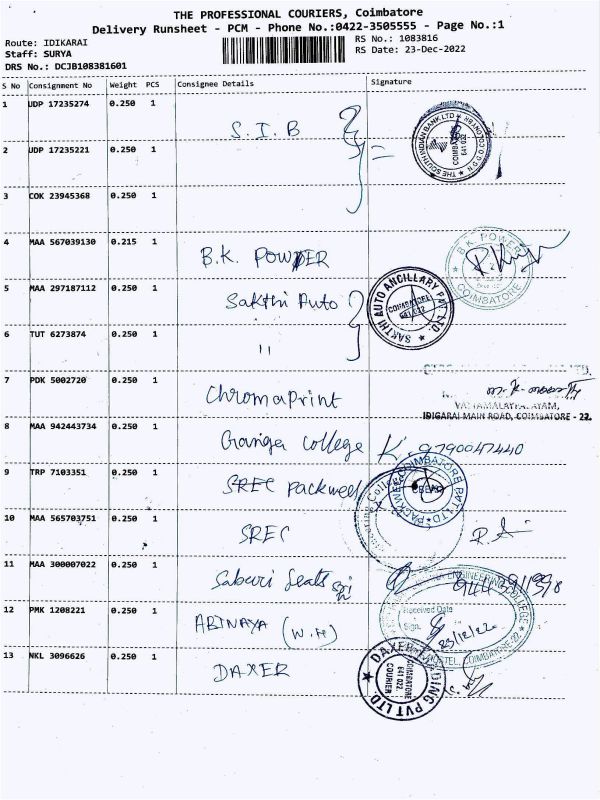 THE PROFESSIONAL COURIERS, Coimbatore
Delivery Runsheet - PCM - Phone No.:0422-3505555 - Page No.:1
Route: IDIKARAI
RS No.: 1083816
Staff: SURYA
RS Date: 23-Dec-2022
DRS No.: DCJB108381601
S No Consignment No Weight PCS Consignee Details Signature
1 UDP 17235274 0.250 1 S.I.B
THE SOUTH INDIAN BANK LTD
COIMBATORE 641 022
2 UDP 17235221 0.250 1 =
3 COK 23945368 0.250 1
4 MAA 567039130 0.215 1 B.K. POWDER
B.K. POWER COIMBATORE
5 MAA 297187112 0.250 1 Sakthi Auto
SAKTHI AUTO ANCILLARY PVT LTD.
COIMBATORE 641 022
6 TUT 6273874 0.250 1 "
7 PDK 5002720 0.250 1 Chromaprint
IDIGARAI MAIN ROAD, COIMBATORE - 22.
8 MAA 942443734 0.250 1 Ganga College K. 9790047440
9 TRP 7103351 0.250 1 SREC Packwell
PACKWELL COIMBATORE PVT LTD
10 MAA 565703751 0.250 1 SREC
11 MAA 300007022 0.250 1 Saburi Seats
ENGINEERING COLLEGE
12 PMK 1208221 0.250 1 ABINAYA (W.H)
Received Date
Sign.
23/12/22
HOSTEL, COIMBATORE-22
13 NKL 3096626 0.250 1 DAXER
DAXER PVT LTD
COIMBATORE 641 022. COURIER